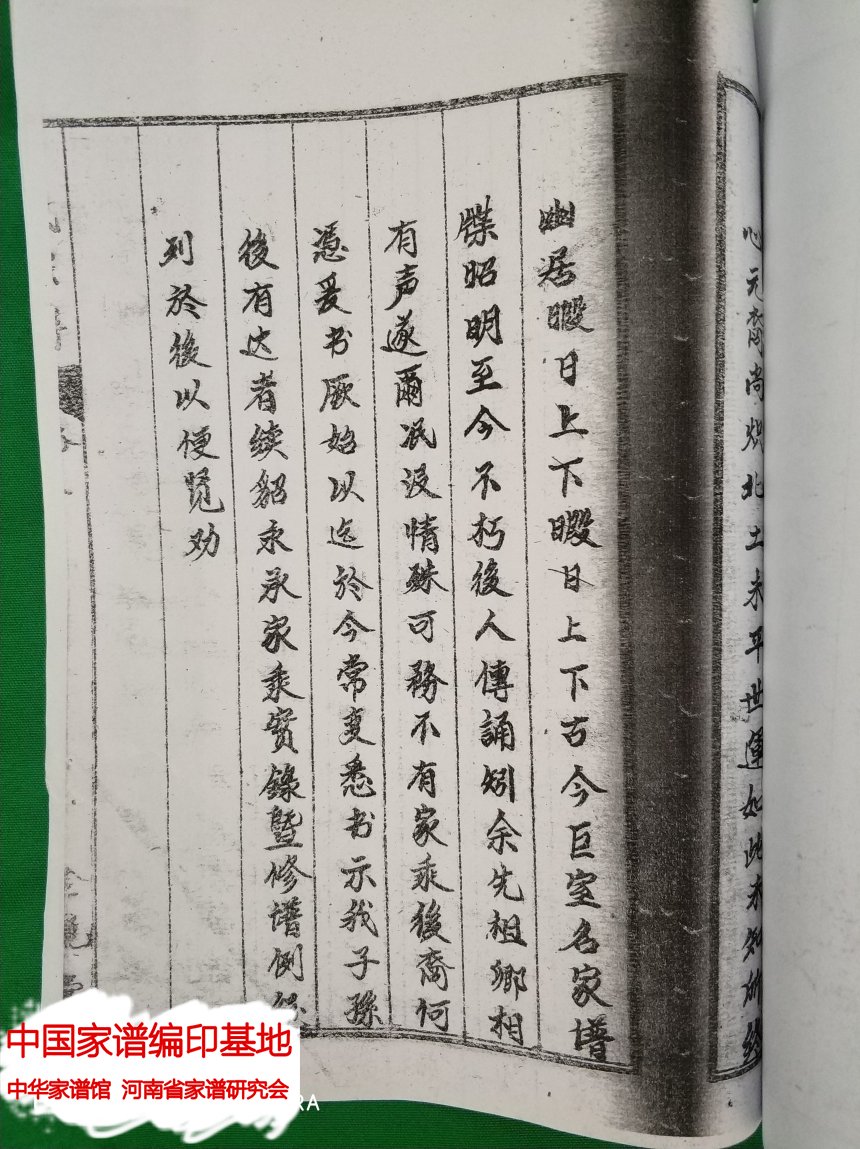 心元裔尚炽北土未平世運如此未知所終
幽居暇日上下暇日上下古今巨室名家譜
牒昭明至今不朽後人傳誦矧余先祖卿相
有声遂爾泯没情殊可務不有家乘後裔何
憑爰书厥始以迄於今常变悉书示我子孫
後有达者续貂永承家乘实錄暨修谱例
列於後以便览劝
中国家谱编印基地
中华家谱馆 河南省家谱研究会
RA